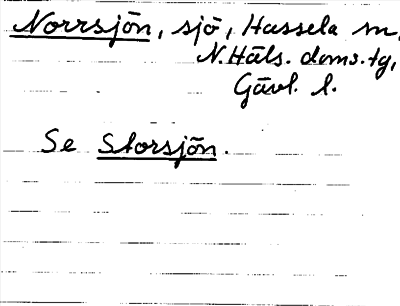 Norrsjön, sjö, Hassela sn,
N.Häls. doms.tg,
Gävl. l.
Se Storsjön.